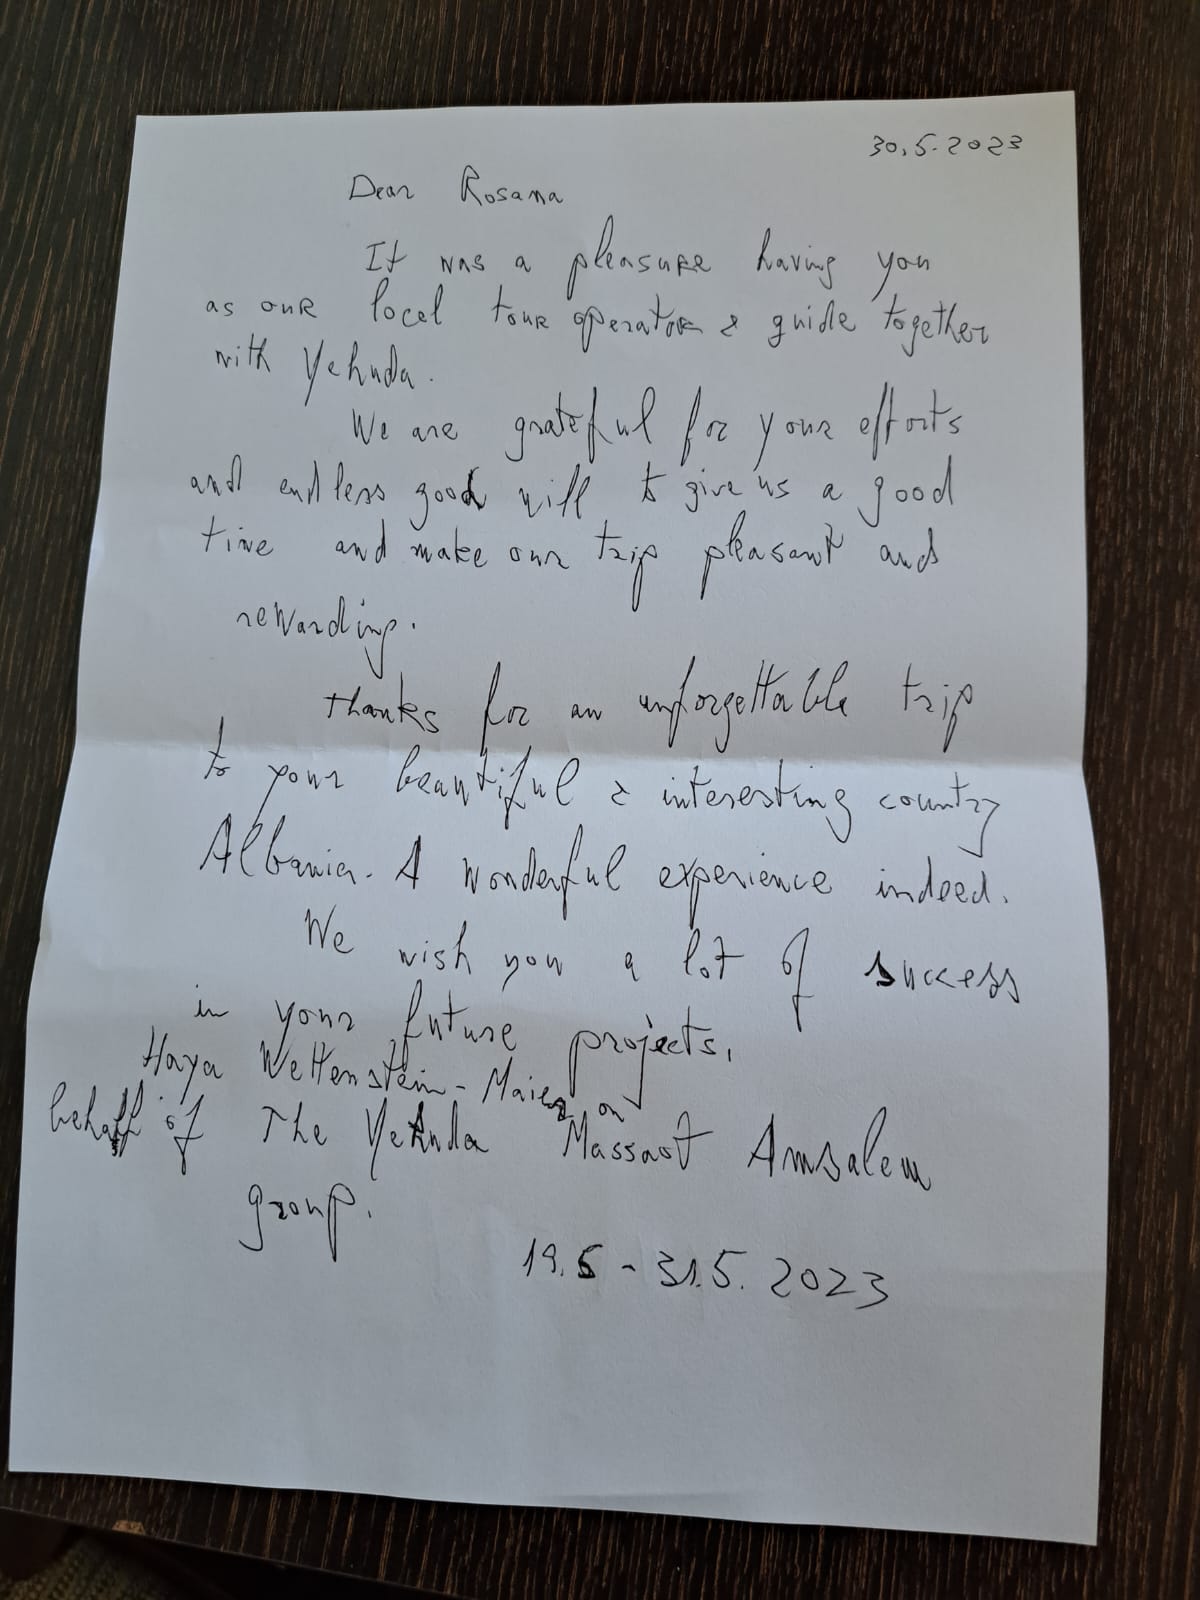 30.5.2023
Dear Rosana
It was a pleasure having you
as our local tour operator & guide together
with Yehuda.
We are grateful for your efforts
and endless good will to give us a good
time and make our trip pleasant and
rewarding.
Thanks for an unforgettable trip
to your beautiful & interesting country
Albania. A wonderful experience indeed.
We wish you a lot of success
in your future projects.
Haya Wettenstein-Maier on
behalf of The Yehuda Massaot Amsalem
group.
19.5 - 31.5. 2023